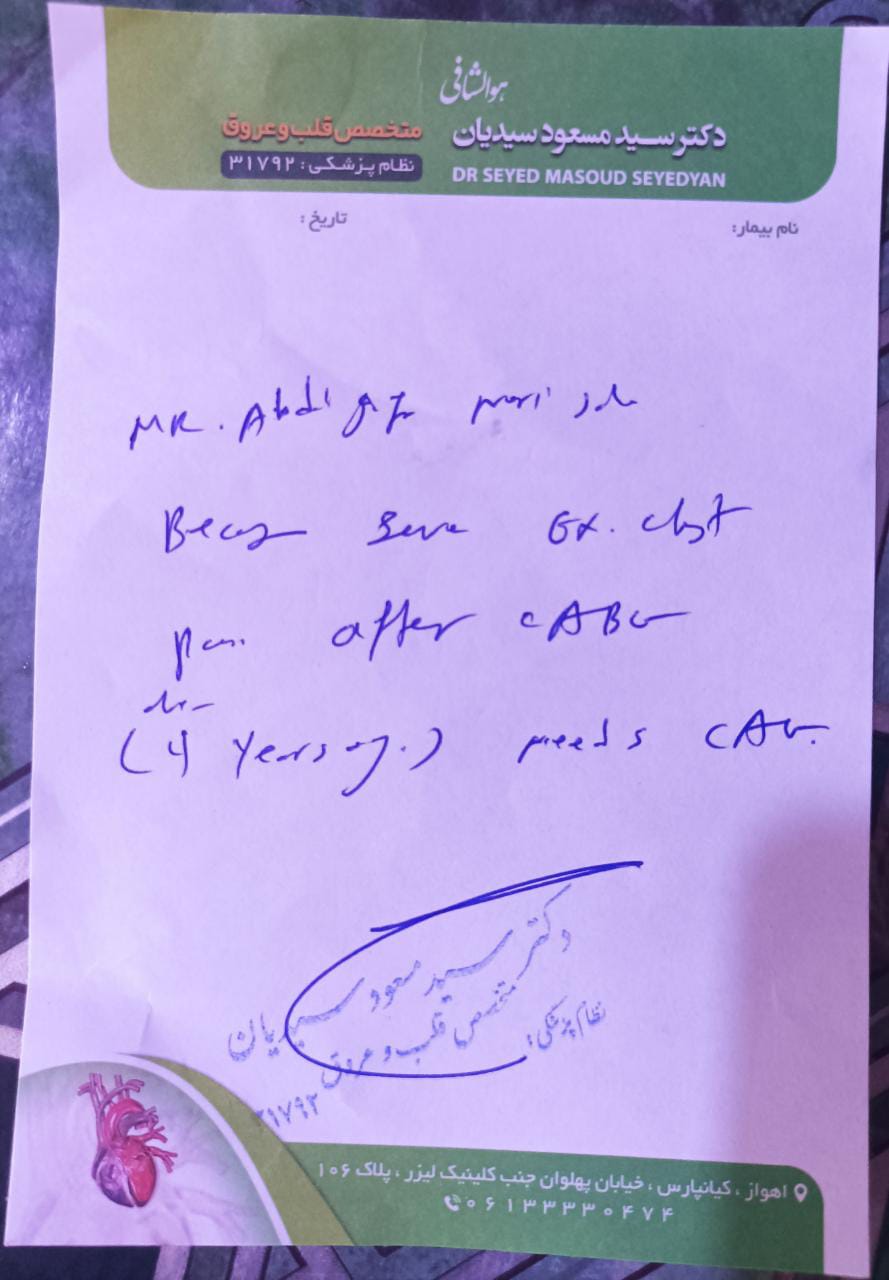 هوالشافی
دکتر سید مسعود سیدیان
متخصص قلب و عروق
DR SEYED MASOUD SEYEDYAN
نظام پزشکی : ۳۱۷۹۲
نام بیمار:
تاریخ :
MR. Abdi
chest
after CABG
(4 years ago.) needs CAG.
دکتر سید مسعود سیدیان
متخصص قلب و عروق
نظام پزشکی:
۳۱۷۹۲
اهواز ، کیانپارس ، خیابان پهلوان جنب کلینیک لیزر ، پلاک ۱۰۶
۰۶۱۳۳۳۳۰۴۷۴